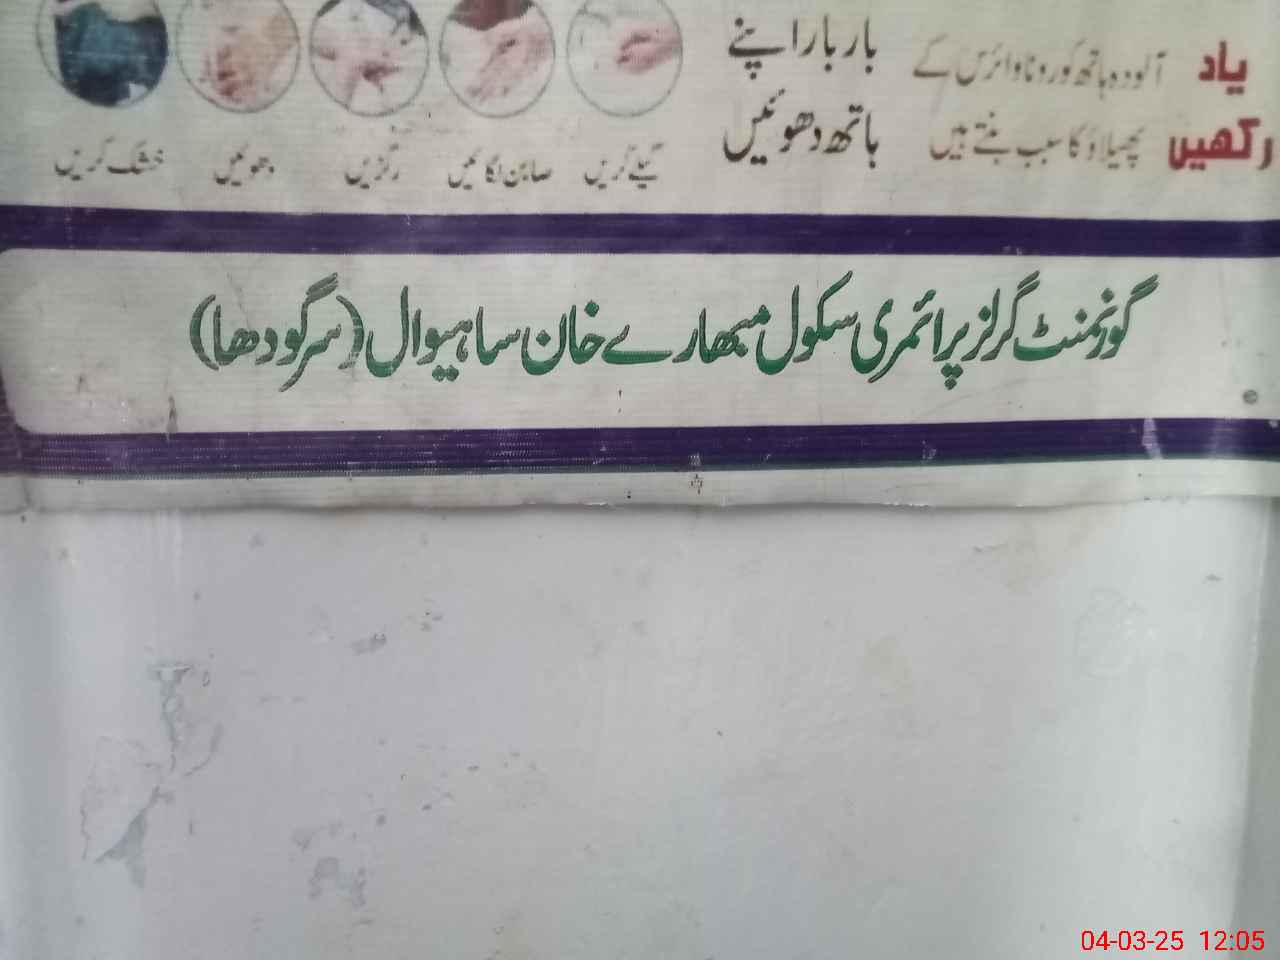 یاد
رکھیں
آلودہ ہاتھ کورونا وائرس کے
پھیلاؤ کا سبب بنتے ہیں
بار بار اپنے
ہاتھ دھوئیں
گیلے کریں
صابن لگائیں
رگڑیں
دھوئیں
خشک کریں
گورنمنٹ گرلز پرائمری سکول مبھارے خان ساہیوال (سرگودھا)
04-03-25 12:05